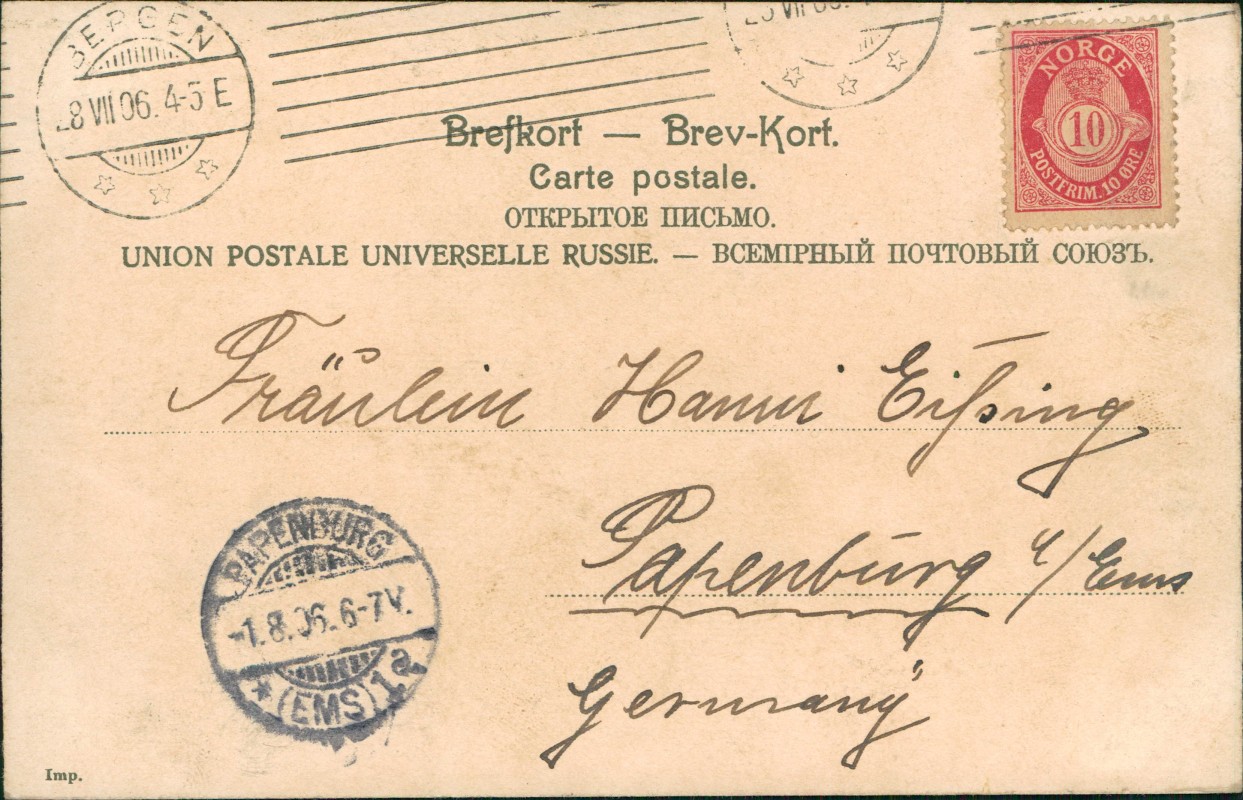 BERGEN
28 VII 06. 4-5 E
VII 06.
NORGE
10
POSTFRIM. 10 ØRE
Brefkort — Brev-Kort.
Carte postale.
ОТКРЫТОЕ ПИСЬМО.
UNION POSTALE UNIVERSELLE RUSSIE. — ВСЕМІРНЫЙ ПОЧТОВЫЙ СОЮЗЪ.
Fräulein Hanni Eißing
Papenburg a/Ems
Germany
PAPENBURG
-1.8.06.6-7V.
* (EMS) 1a
Imp.